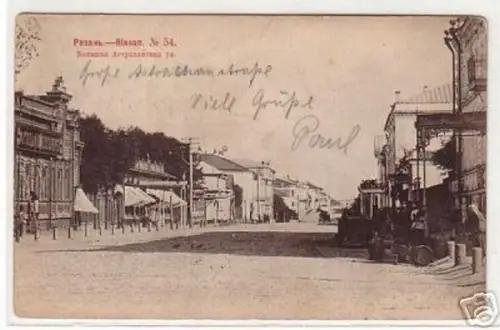 Рязань.—Riasan. № 54.
Большая Астраханская ул.
Große Astrachanstraße
Viele Grüße
Paul